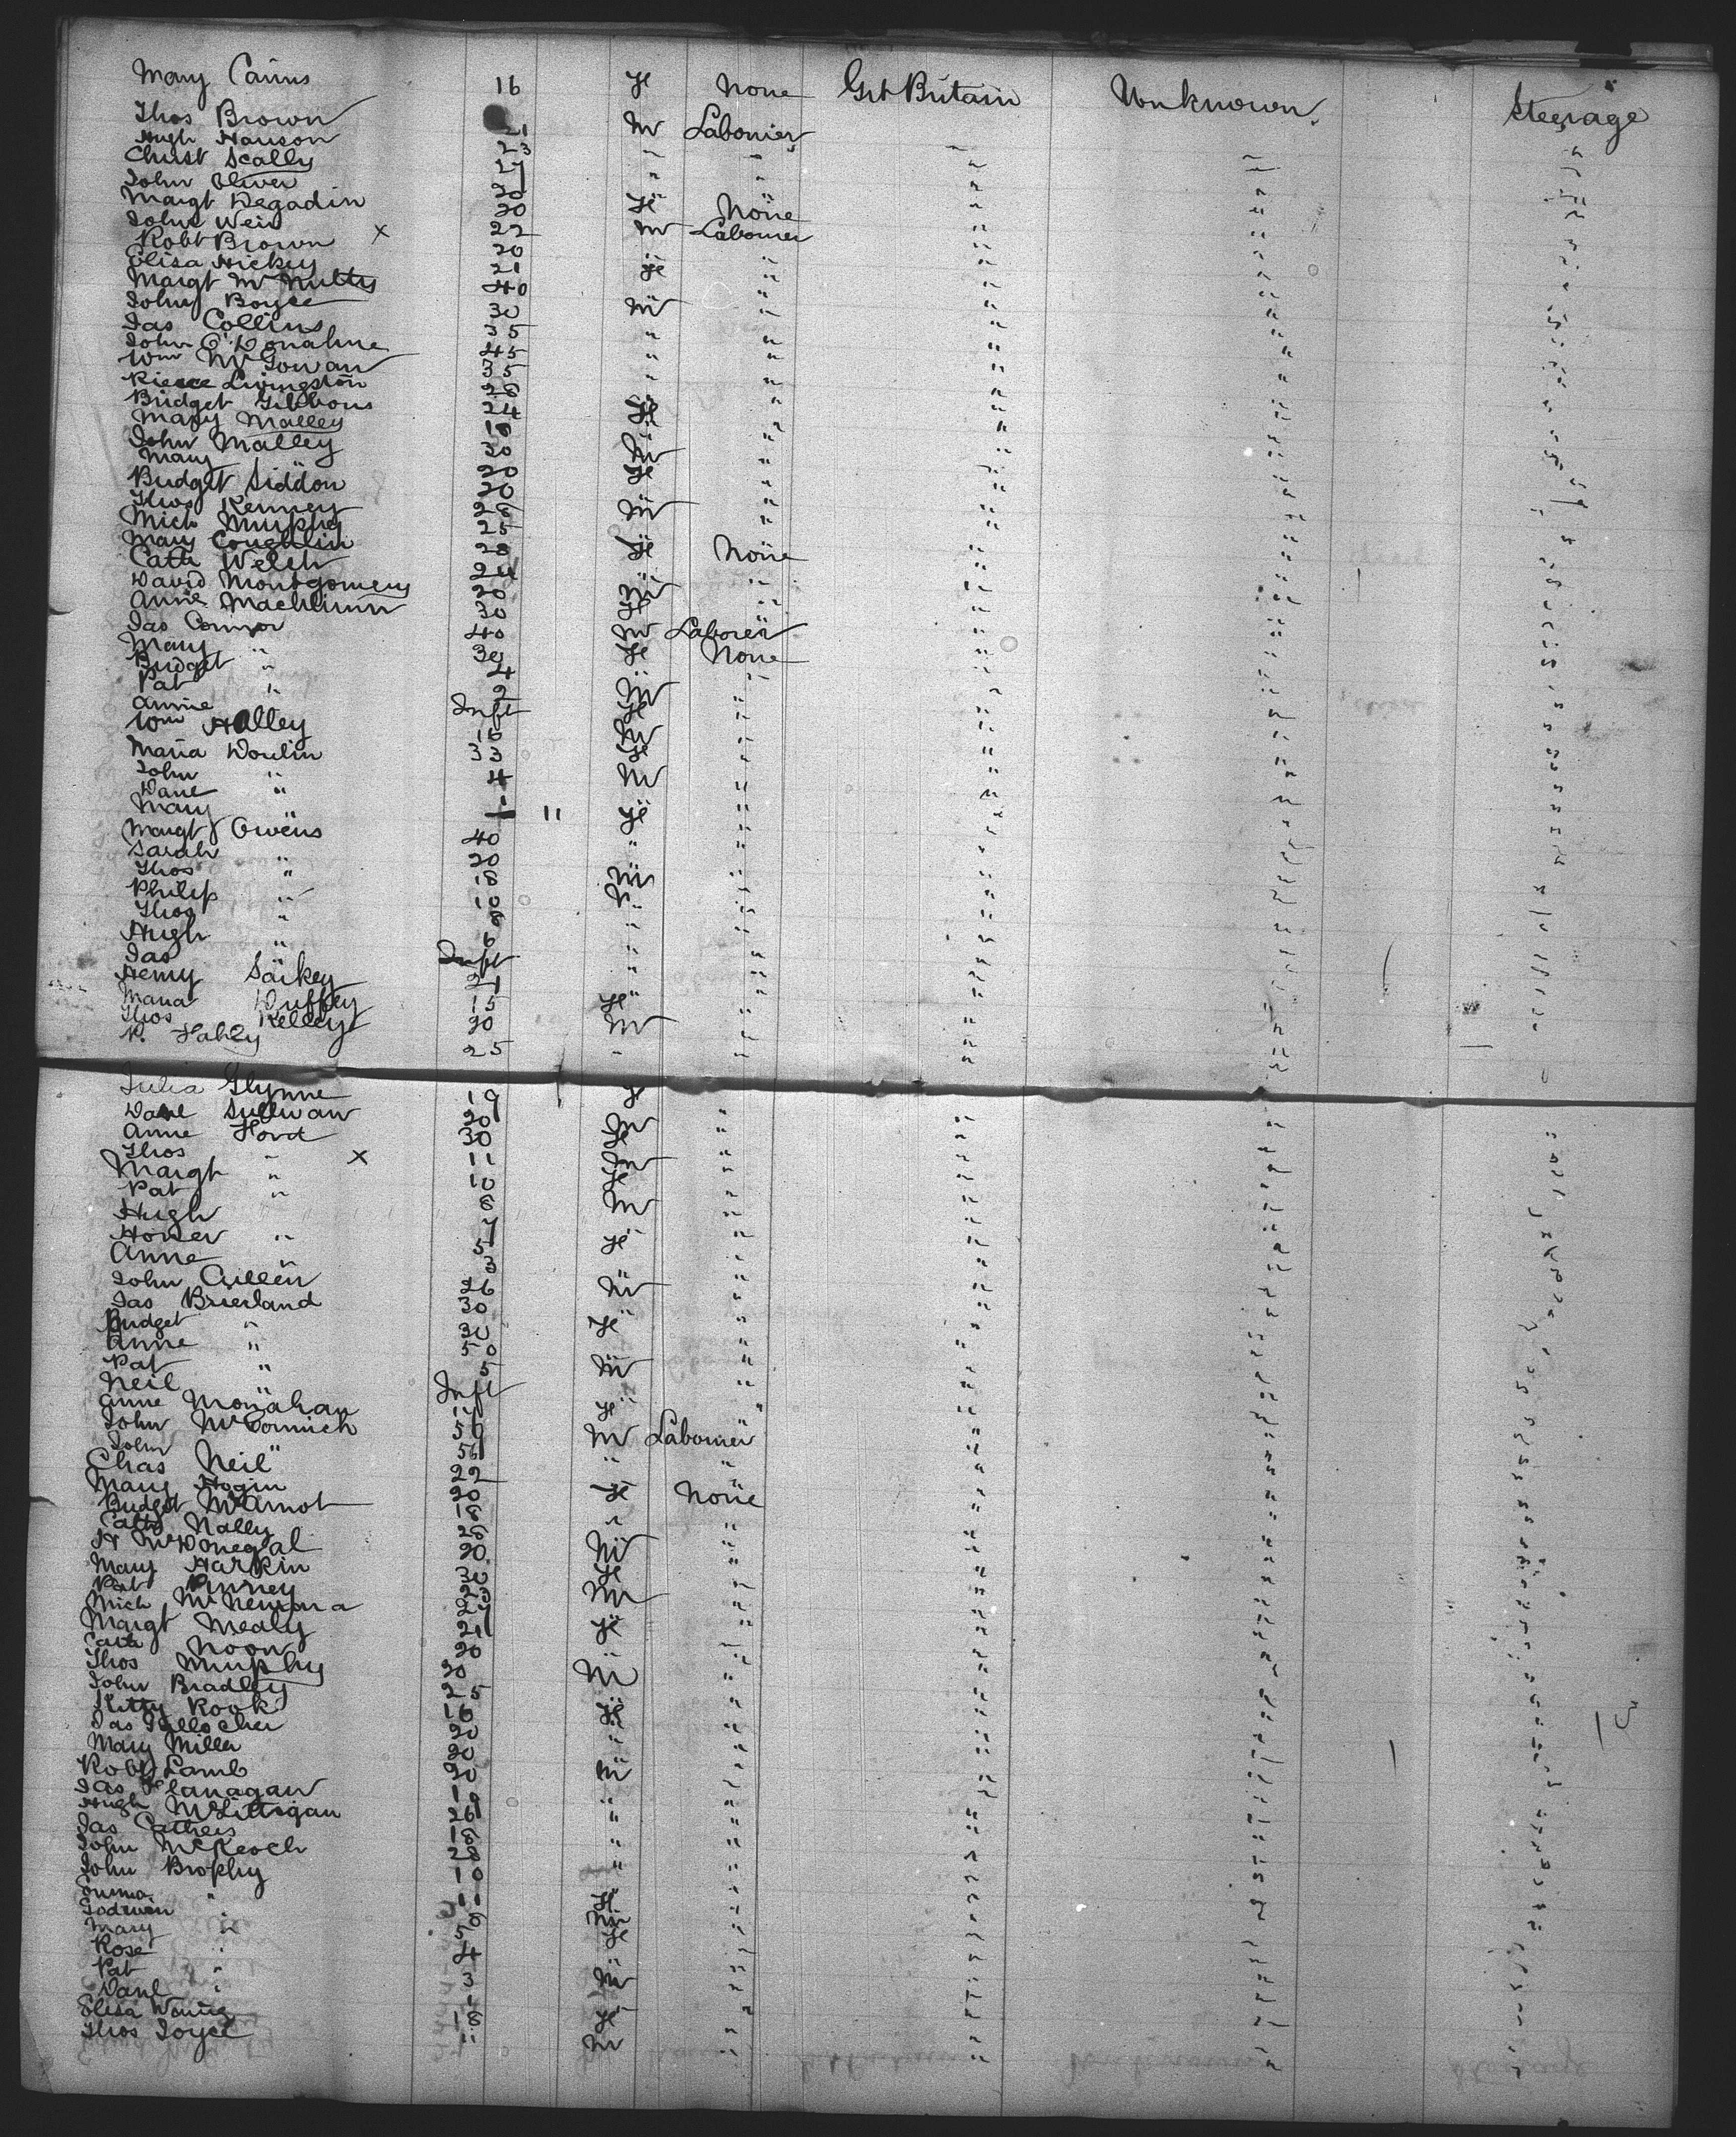 Mary Cairns 16 Fe None Grt Britain Unknown. Steerage
Thos Brown 21 M Labourer
Hugh Hanson 23 " " " " "
Christ Scally 27 " " " " "
John Oliver 20 " " " " "
Margt Degadin 20 Fe None " " "
John Weir 22 M Labourer " " "
Robt Brown x 20 " " " " "
Elisa Hickey 21 Fe " " " "
Margt McNulty 40 " " " " "
John Boyce 30 M " " " "
Jas Collins 35 " " " " "
John O'Donahue 45 " " " " "
Wm McGowan 35 " " " " "
Pierce Livingston 28 " " " " "
Bridget Gibbons 24 Fe " " " "
Mary Malley 18 " " " " "
John Malley 30 M " " " "
Mary " 20 Fe " " " "
Bridget Siddon 20 " " " " "
Thos Kenney 28 M " " " "
Mich Murphy 25 " " " " "
Mary Coughlin 28 Fe None " " "
Cath Welch 24 " " " " "
David Montgomery 20 M " " " "
Annie Machlinn 30 Fe " " " "
Jas Connor 40 M Laborer " " "
Mary " 30 Fe None " " "
Bridget " 4 " " " " "
Pat " 2 M " " " "
Annie Inft Fe " " " "
Wm Halley 18 M " " " "
Maria Doulin 33 Fe " " " "
John " 4 M " " " "
Dane " " " " " "
Mary " 11 Fe " " " "
Margt Owens 40 " " " " "
Sarah " 20 " " " " "
Thos " 18 M " " " "
Philip " 10 " " " " "
Thos " 8 " " " " "
Hugh " 6 " " " " "
Jas Inft " " " " "
Henry Sarkey 21 " " " " "
Maria Duffey 15 Fe " " " "
Thos Kelley 20 M " " " "
P. Fahey 25 " " " " "
Julia Glynne 19 Fe
Danl Sullivan 20 M " " " "
Anne Hord 30 Fe " " " "
Thos " x 11 M " " " "
Margt " 10 Fe " " " "
Pat " 8 M " " " "
Hugh 7 " " " " "
Honer " 5 Fe " " " "
Anne " 3 " " " " "
John Cullen 26 M " " " "
Jas Brierland 30 " " " " "
Bridget " 30 Fe " " " "
Anne " 50 " " " " "
Pat " 5 M " " " "
Neil " Inft " " " " "
Anne Monahan 17 Fe " " " "
John McCormick 59 M Labourer " " "
John " 56 " " " " "
Chas Neil 22 " " " " "
Mary Hogin 20 Fe None " " "
Bridget McArnot 18 " " " " "
Cath Nally 28 " " " " "
H McDonegal 20 M " " " "
Mary Harkin 30 Fe " " " "
Pat Pinney 23 M " " " "
Mich McNemara 27 " " " " "
Margt Mealy 21 Fe " " " "
Cath Noon 20 " " " " "
Thos Murphy 30 M " " " "
John Bradley 25 " " " " "
Kitty Rook 16 Fe " " " "
Jas Gallocher 20 " " " " "
Mary Miller 20 " " " " "
Robt Lamb 20 M " " " "
Jas Flanagan 19 " " " " "
Hugh McGittigan 26 " " " " "
Jas Cathers 18 " " " " "
John McKeoch 28 " " " " "
John Brophy 10 " " " " "
Emma " Fe " " " "
Godwin " 8 M " " " "
Mary " 5 Fe " " " "
Rose " 4 " " " " "
Pat " 3 M " " " "
Danl " 1 " " " " "
Elisa Waring 18 Fe " " " "
Thos Joyce 11 M " " " "